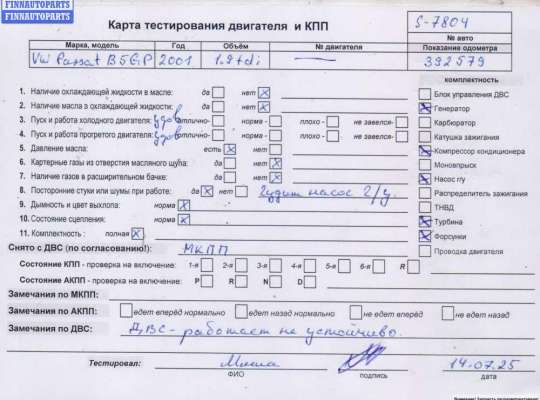 FINNAUTOPARTS
FINNAUTOPARTS
FINNAUTOPARTS
Карта тестирования двигателя и КПП
S-7804
№ авто
Марка, модель Год Объём № двигателя Показание одометра
VW Passat B5GP 2001 1.9tdi — 392579
комплектность
1. Наличие охлаждающей жидкости в масле: да нет
Блок управления ДВС
2. Наличие масла в охлаждающей жидкости: да нет
Генератор
3. Пуск и работа холодного двигателя: удов отлично- норма - плохо - не завелся-
Карбюратор
4. Пуск и работа прогретого двигателя: удов отлично- норма - плохо - не завелся-
Катушка зажигания
5. Давление масла: есть нет
Компрессор кондиционера
6. Картерные газы из отверстия масляного щупа: да нет
Моновпрыск
7. Наличие газов в расширительном бачке: да нет
Насос г/у
8. Посторонние стуки или шумы при работе: да нет Гудит насос г/у.
Распределитель зажигания
9. Дымность и цвет выхлопа: норма
ТНВД
10. Состояние сцепления: норма
Турбина
11. Комплектность : полная
Форсунки
Снято с ДВС (по согласованию!): МКПП
Проводка двигателя
Состояние КПП - проверка на включение: 1-я 2-я 3-я 4-я 5-я 6-я R
Состояние АКПП - проверка на включение: P R N D
Замечания по МКПП:
Замечания по АКПП: едет вперёд нормально едет назад нормально не едет вперёд не едет назад
Замечания по ДВС: ДВС - работает не устойчиво.
Тестировал: Миша 14.07.25
ФИО подпись дата